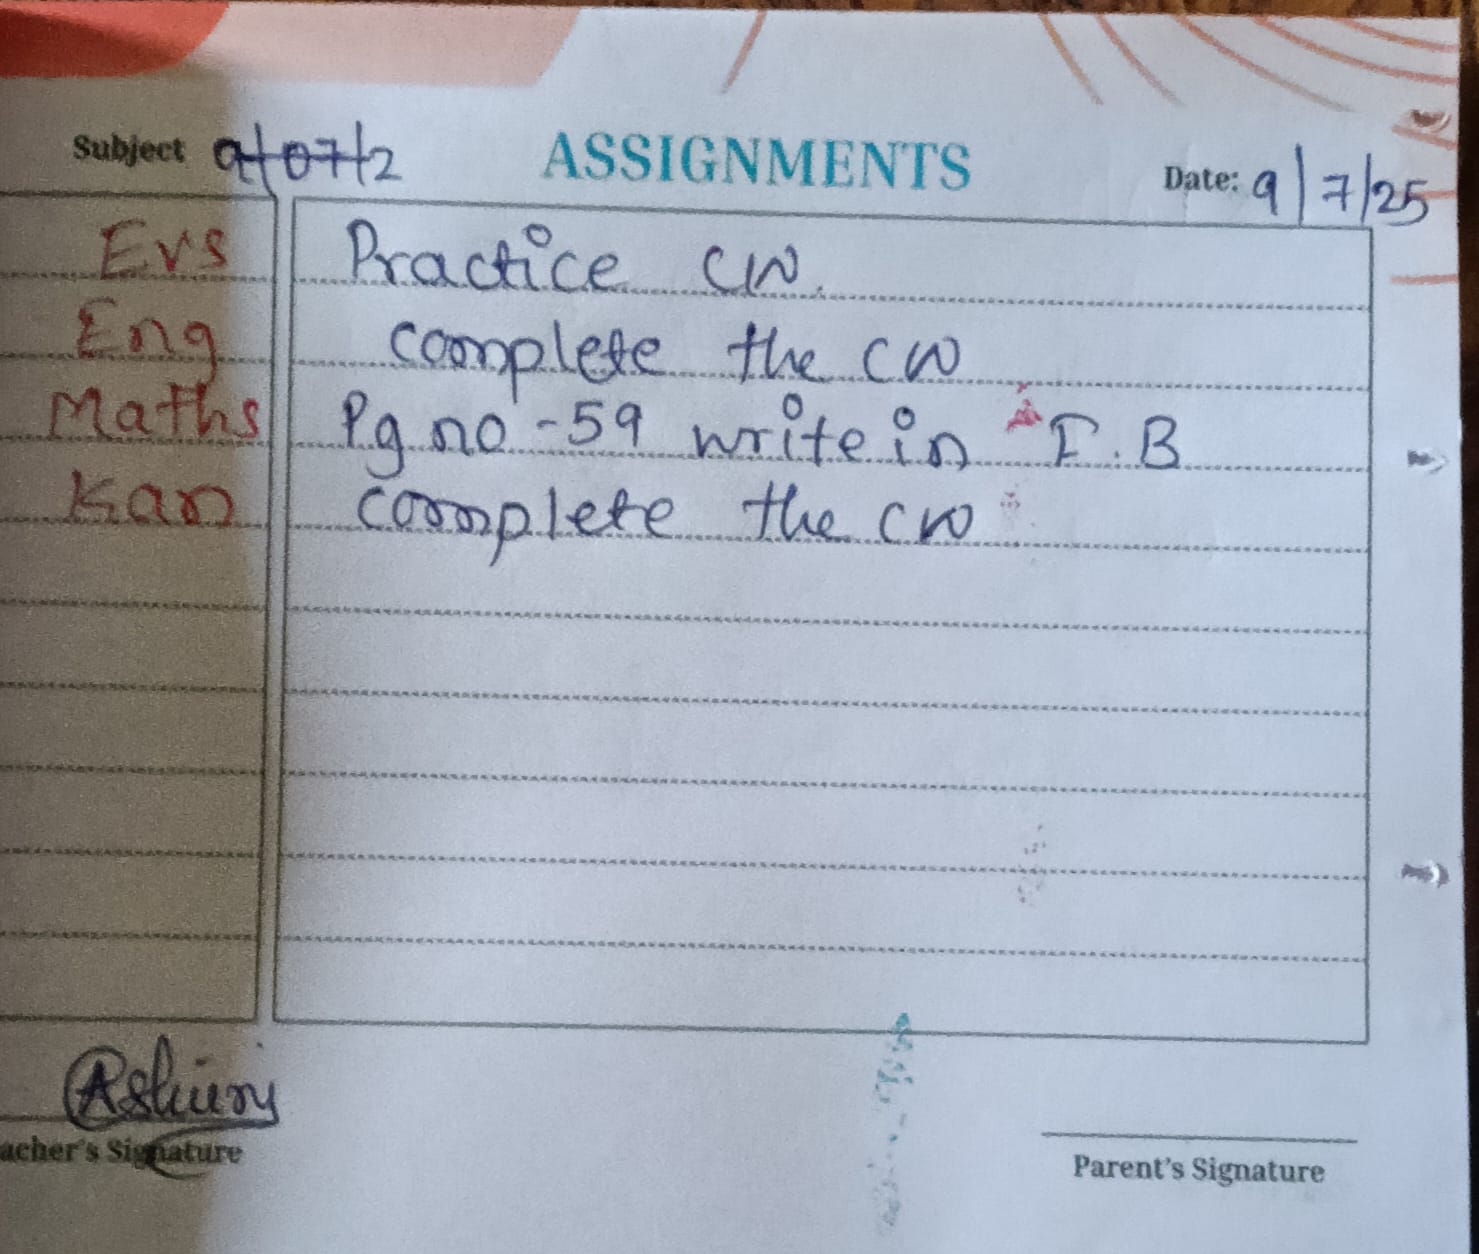 Subject 9/07/2 ASSIGNMENTS Date: 9/7/25
Evs Practice CW.
Eng complete the CW
Maths Pg no - 59 write in F.B
Kan complete the CW
Ashwini
acher's Signature
Parent's Signature